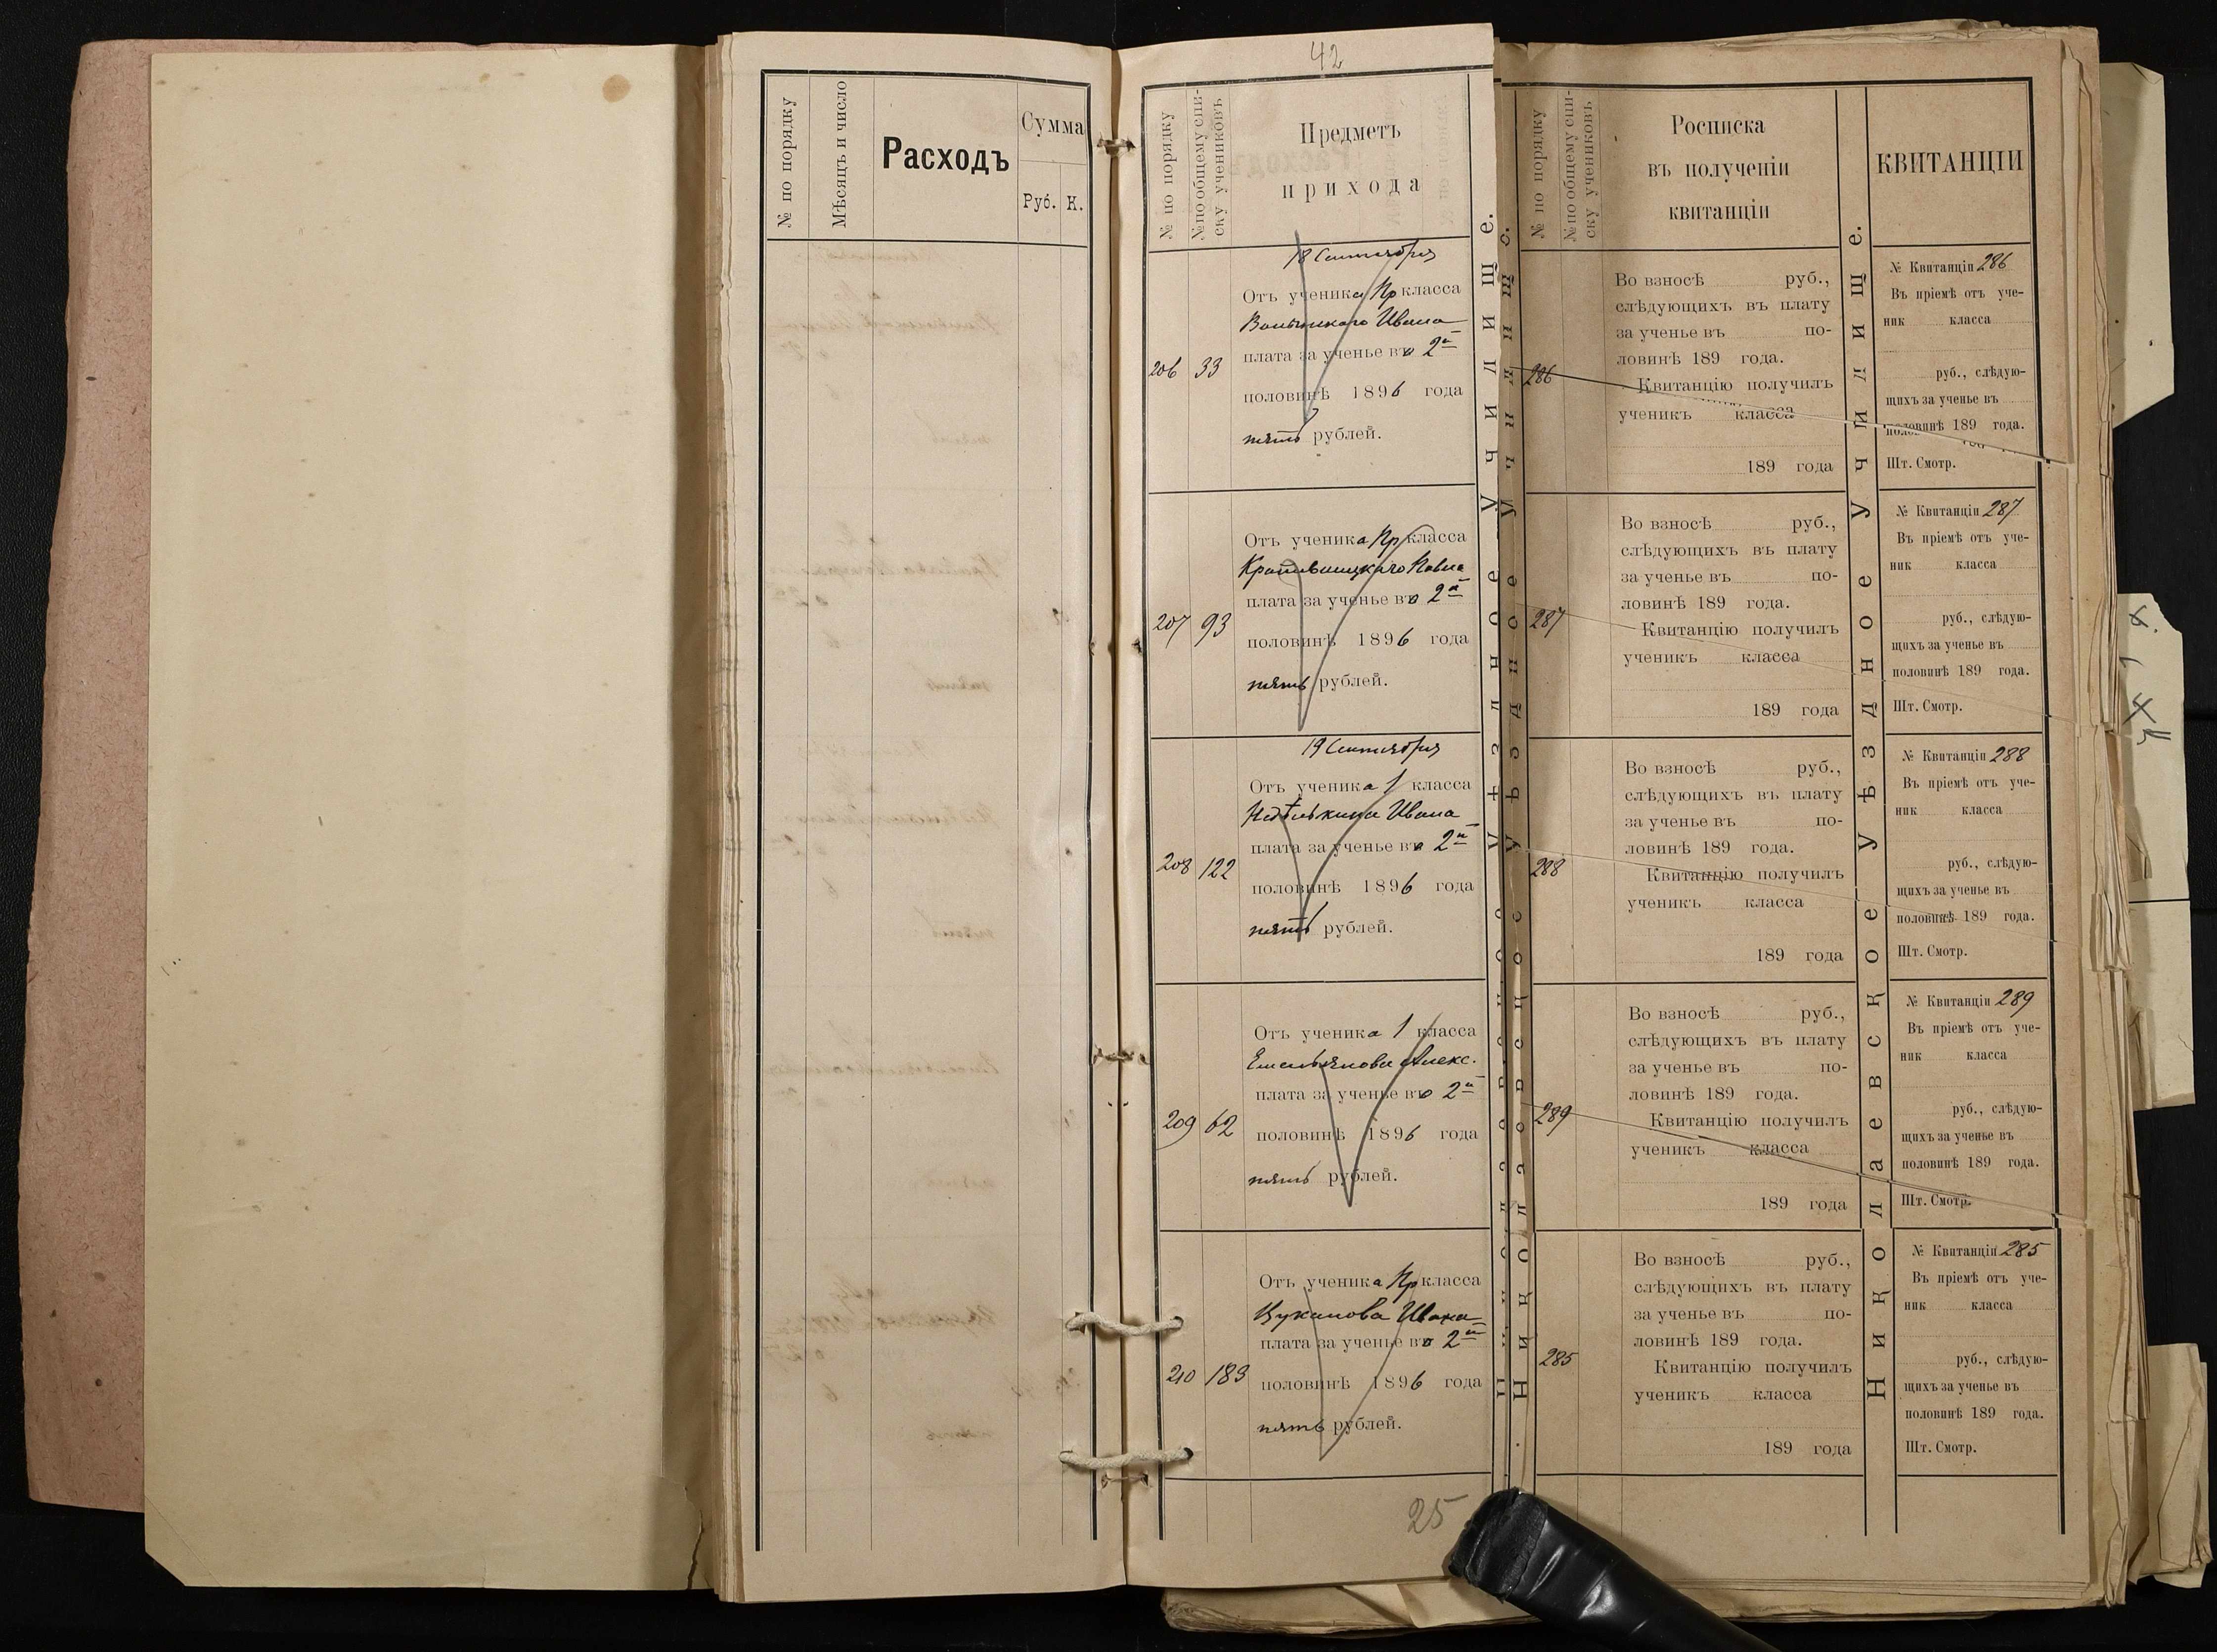 № по порядку
Мѣсяцъ и число
Расходъ
Сумма
Руб. К.
42
№ по порядку
№ по общему спи-
ску учениковъ
Предметъ
прихода
18 Сентября
206 33
Отъ ученика Пр класса
Ивана
плата за ученье во 2й
половинѣ 1896 года
пять рублей.
207 93
Отъ ученика Пр класса
Кропивницкаго Павла
плата за ученье во 2й
половинѣ 1896 года
пять рублей.
19 Сентября
208 122
Отъ ученика 1 класса
Недѣлькина Ивана
плата за ученье во 2й
половинѣ 1896 года
пять рублей.
209 62
Отъ ученика 1 класса
Емельянова Алекс.
плата за ученье во 2й
половинѣ 1896 года
пять рублей.
210 183
Отъ ученика Пр класса
Цуканова Ивана
плата за ученье во 2й
половинѣ 1896 года
пять рублей.
25
№ по порядку
№ по общему спи-
ску учениковъ
Росписка
въ полученіи
квитанціи
286
Во взносѣ руб.,
слѣдующихъ въ плату
за ученье въ по-
ловинѣ 189 года.
Квитанцію получилъ
ученикъ класса
189 года
287
Во взносѣ руб.,
слѣдующихъ въ плату
за ученье въ по-
ловинѣ 189 года.
Квитанцію получилъ
ученикъ класса
189 года
288
Во взносѣ руб.,
слѣдующихъ въ плату
за ученье въ по-
ловинѣ 189 года.
Квитанцію получилъ
ученикъ класса
189 года
289
Во взносѣ руб.,
слѣдующихъ въ плату
за ученье въ по-
ловинѣ 189 года.
Квитанцію получилъ
ученикъ класса
189 года
285
Во взносѣ руб.,
слѣдующихъ въ плату
за ученье въ по-
ловинѣ 189 года.
Квитанцію получилъ
ученикъ класса
189 года
Николаевское Уѣздное Училище.
КВИТАНЦІИ
№ Квитанціи 286
Въ пріемѣ отъ уче-
ник класса
руб., слѣдую-
щихъ за ученье въ
половинѣ 189 года.
Шт. Смотр.
№ Квитанціи 287
Въ пріемѣ отъ уче-
ник класса
руб., слѣдую-
щихъ за ученье въ
половинѣ 189 года.
Шт. Смотр.
№ Квитанціи 288
Въ пріемѣ отъ уче-
ник класса
руб., слѣдую-
щихъ за ученье въ
половинѣ 189 года.
Шт. Смотр.
№ Квитанціи 289
Въ пріемѣ отъ уче-
ник класса
руб., слѣдую-
щихъ за ученье въ
половинѣ 189 года.
Шт. Смотр.
№ Квитанціи 285
Въ пріемѣ отъ уче-
ник класса
руб., слѣдую-
щихъ за ученье въ
половинѣ 189 года.
Шт. Смотр.